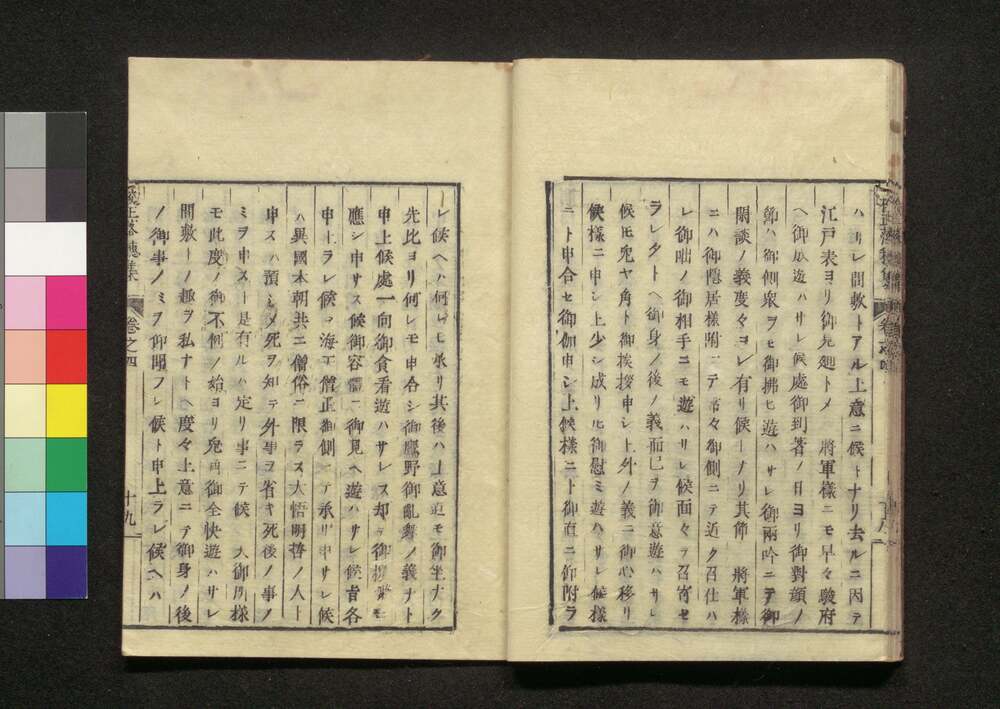 ハサレ間敷トアル上意ニ候トナリ去ルニ因テ
江戸表ヨリ御見廻トメ 將軍様ニモ早々駿府
ヘ御成遊ハサレ候處御到著ノ日ヨリ御對顔ノ
節ハ御側衆ヲモ御拂ヒ遊ハサレ御兩吟ニテ御
閑談ノ義度々ヨレ有リ候トノリ其節 將軍様
ニハ御隱居様附ニテ常々御側ニテ近ク召仕ハ
レ御咄ノ御相手ニモ遊ハサレ候面々ヲ召寄セ
ラレタトヘ御身ノ後ノ義而已ヲ御意遊ハサレ
候ヒ兎ヤ角ト御挨拶申シ上外ノ義ニ御心移リ
候様ニ申シ上少シ成リヒ御慰ミ遊ハサレ候様
ニト申合セ御伽申シ上候様ニト御直ニ御附ラ
レ候ヘハ何レモ承リ其後ハ上意迄モ御坐ナク
先比ヨリ何レモ申合シ御鷹野御亂舞ノ義ナト
申上候處一向御貪看遊ハサレス却テ御挨拶モ
應シ申サス候御容體ニ御見ヘ遊ハサレ候旨各
申上ラレ候ヘ海 僧正御側ニテ承リ申サレ候
ハ異國本朝共ニ僧俗ニ限ラス大悟明哲ノ人ト
申スハ預シメ死ヲ知テ外事ヲ省キ死後ノ事ノ
ミヲ申スト是有ルハ定リ事ニテ候 大御所様
モ此度ノ御不例ノ始ヨリ兎角御全快遊ハサレ
間敷トノ趣ヲ私ナトヘ度々上意ニテ御身ノ後
ノ御事ノミヲ仰聞フレ候ト申上ラレ候ヘハ
卷之四
十九